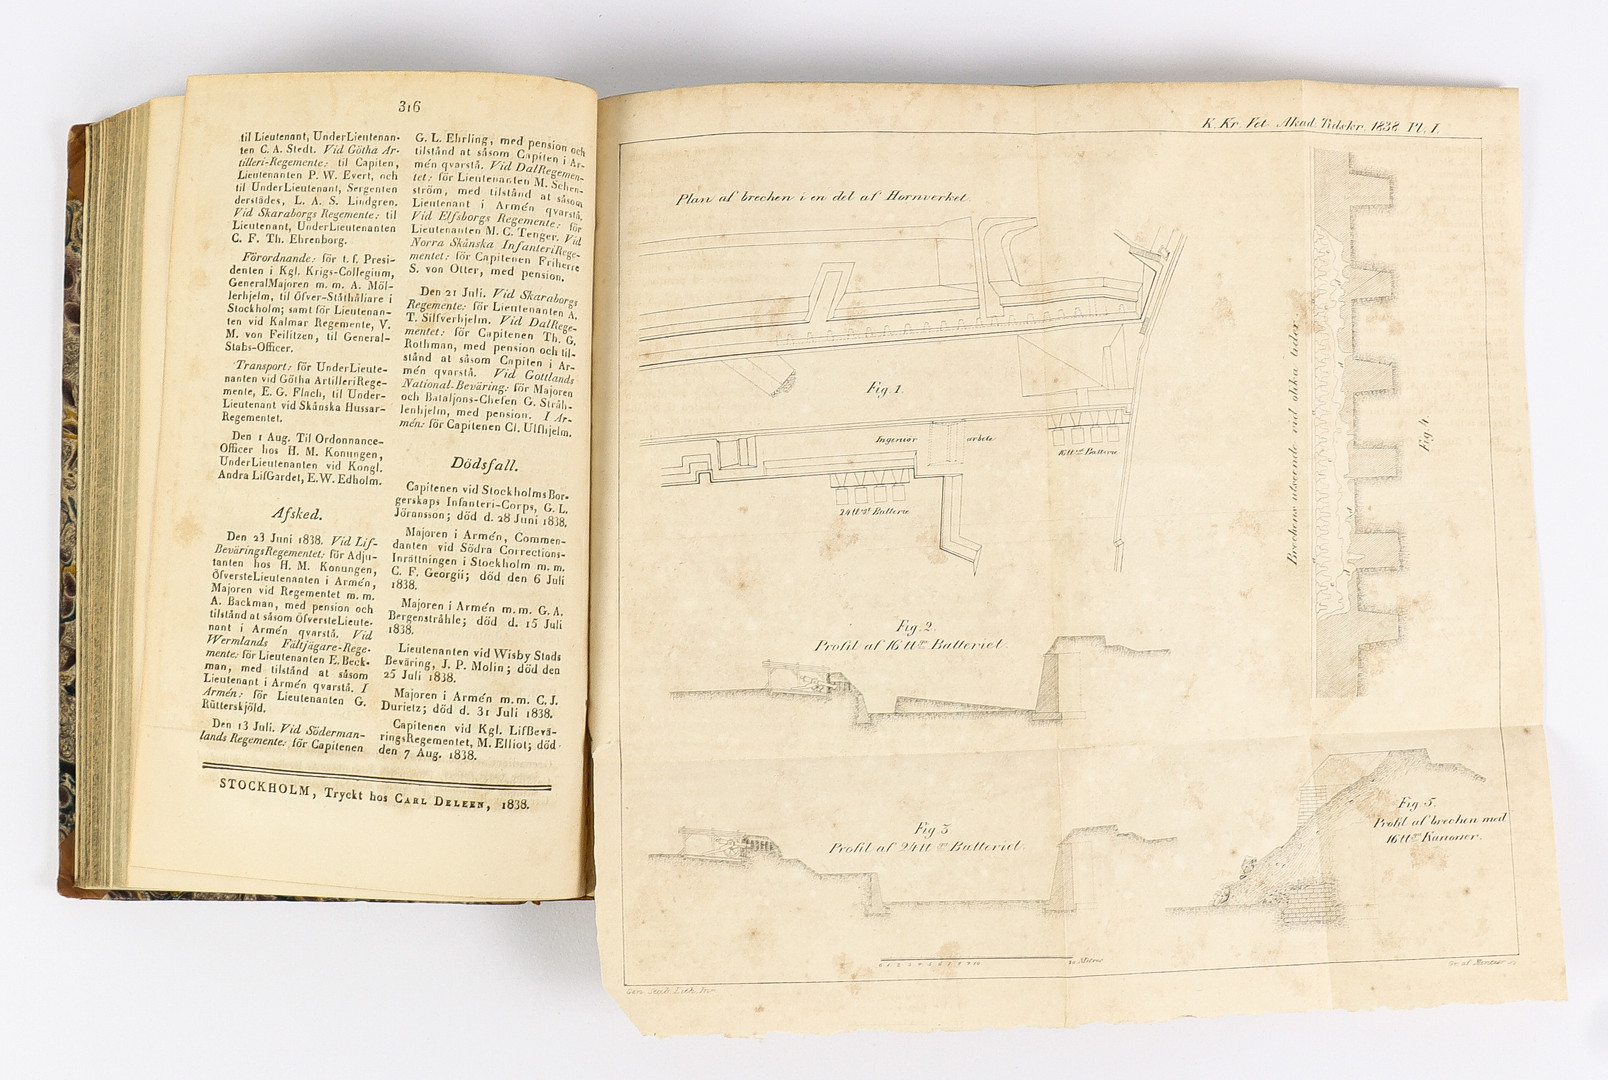 316
til Lieutenant, UnderLieutenan-
ten C. A. Stedt. Vid Götha Ar-
tilleri-Regemente: til Capiten,
Lieutenanten P. W. Evert, och
til UnderLieutenant, Sergenten
derstädes, L. A. S. Lindgren.
Vid Skaraborgs Regemente: til
Lieutenant, UnderLieutenanten
C. F. Th. Ehrenborg.
Förordnande: för t. f. Presi-
denten i Kgl. Krigs-Collegium,
GeneralMajoren m. m. A. Möl-
lerhjelm, til Öfver-Ståthållare i
Stockholm; samt för Lieutenan-
ten vid Kalmar Regemente, V.
M. von Feilitzen, til General-
Stabs-Officer.
Transport: för UnderLieute-
nanten vid Götha ArtilleriRege-
mente, E. G. Flach, til Under-
Lieutenant vid Skånska Hussar-
Regementet.
Den 1 Aug. Til Ordonnance-
Officer hos H. M. Konungen,
UnderLieutenanten vid Kongl.
Andra LifGardet, E. W. Edholm.
Afsked.
Den 23 Juni 1838. Vid Lif-
BeväringsRegementet: för Adju-
tanten hos H. M. Konungen,
ÖfversteLieutenanten i Armén,
Majoren vid Regementet m. m.
A. Backman, med pension och
tilstånd at såsom ÖfversteLieute-
nant i Armén qvarstå. Vid
Wermlands Fältjägare-Rege-
mente: för Lieutenanten E. Beck-
man, med tilstånd at såsom
Lieutenant i Armén qvarstå. I
Armén: för Lieutenanten G.
Rütterskjöld.
Den 13 Juli. Vid Söderman-
lands Regemente: för Capitenen
G. L. Ehrling, med pension och
tilstånd at såsom Capiten i Ar-
mén qvarstå. Vid DalRegemen-
tet: för Lieutenanten M. Schen-
ström, med tilstånd at såsom
Lieutenant i Armén qvarstå.
Vid Elfsborgs Regemente: för
Lieutenanten M. C. Tenger. Vid
Norra Skånska InfanteriRege-
mentet: för Capitenen Friherre
S. von Otter, med pension.
Den 21 Juli. Vid Skaraborgs
Regemente: för Lieutenanten A.
T. Silfverhjelm. Vid DalRege-
mentet: för Capitenen Th. G.
Rothman, med pension och til-
stånd at såsom Capiten i Ar-
mén qvarstå. Vid Gottlands
National-Beväring: för Majoren
och Bataljons-Chefen G. Stråh-
lenhjelm, med pension. I Ar-
mén: för Capitenen Cl. Ulfhjelm.
Dödsfall.
Capitenen vid Stockholms Bor-
gerskaps Infanteri-Corps, G. L.
Jöransson; död d. 28 Juni 1838.
Majoren i Armén, Commen-
danten vid Södra Corrections-
Inrättningen i Stockholm m. m.
C. F. Georgii; död den 6 Juli
1838.
Majoren i Armén m. m. G. A.
Bergenstråhle; död d. 15 Juli
1838.
Lieutenanten vid Wisby Stads
Beväring, J. P. Molin; död den
25 Juli 1838.
Majoren i Armén m. m. C. J.
Durietz; död d. 31 Juli 1838.
Capitenen vid Kgl. LifBevä-
ringsRegementet, M. Elliot; död
den 7 Aug. 1838.
STOCKHOLM, Tryckt hos CARL DELEEN, 1838.
K. Kr. Vet. Akad. Tidskr. 1838 Pl. I.
Plan af brechen i en del af Hornverket.
Fig. 1.
Ingeniör arbete
16 ℔ Batterie
24 ℔ Batterie
Brechens utseende vid olika tider.
Fig 4.
Fig. 2.
Profil af 16 ℔ Batteriet.
Fig 3
Profil af 24 ℔ Batteriet.
Fig 5.
Profil af brechen med
16 ℔ Kanoner.
Gen. Stab. Lith. Inr.